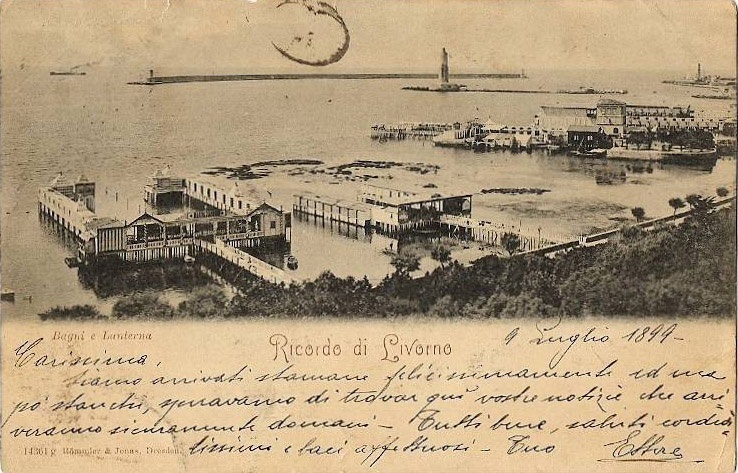 Bagni e Lanterna
Ricordo di Livorno
9 Luglio 1899-
Carissima,
siamo arrivati stamane felicissimamente ed un
pò stanchi, speravamo di trovar quì vostre notizie che arri
veranno sicuramente domani - Tutti bene, saluti cordia
lissimi e baci affettuosi - Tuo Ettore
14361 g Römmler & Jonas, Dresden.